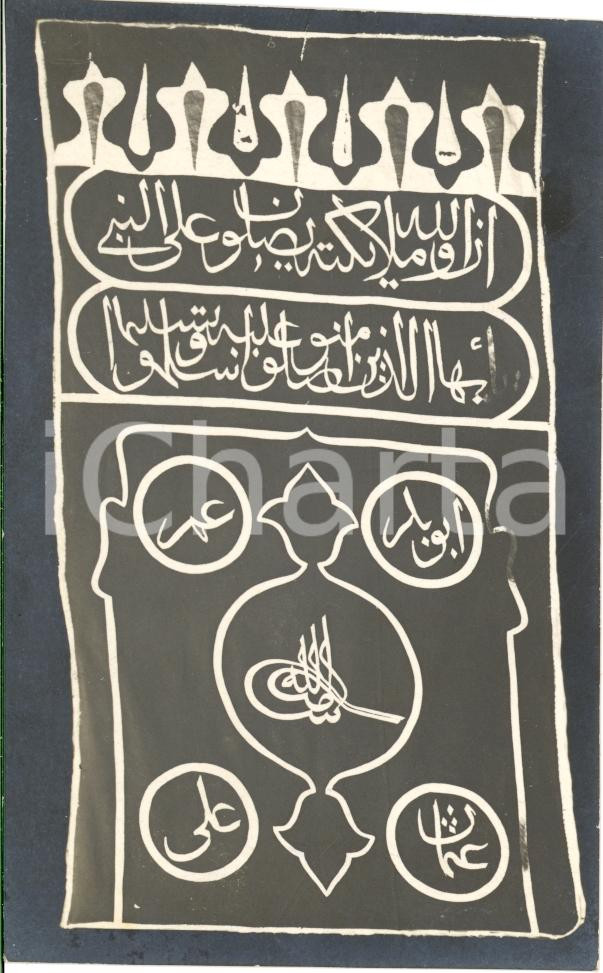 ان الله وملائكته يصلون على النبي
يأيها الذين امنوا صلوا عليه وسلموا تسليما
عمر
ابو بكر
علي
عثمان
iCharta